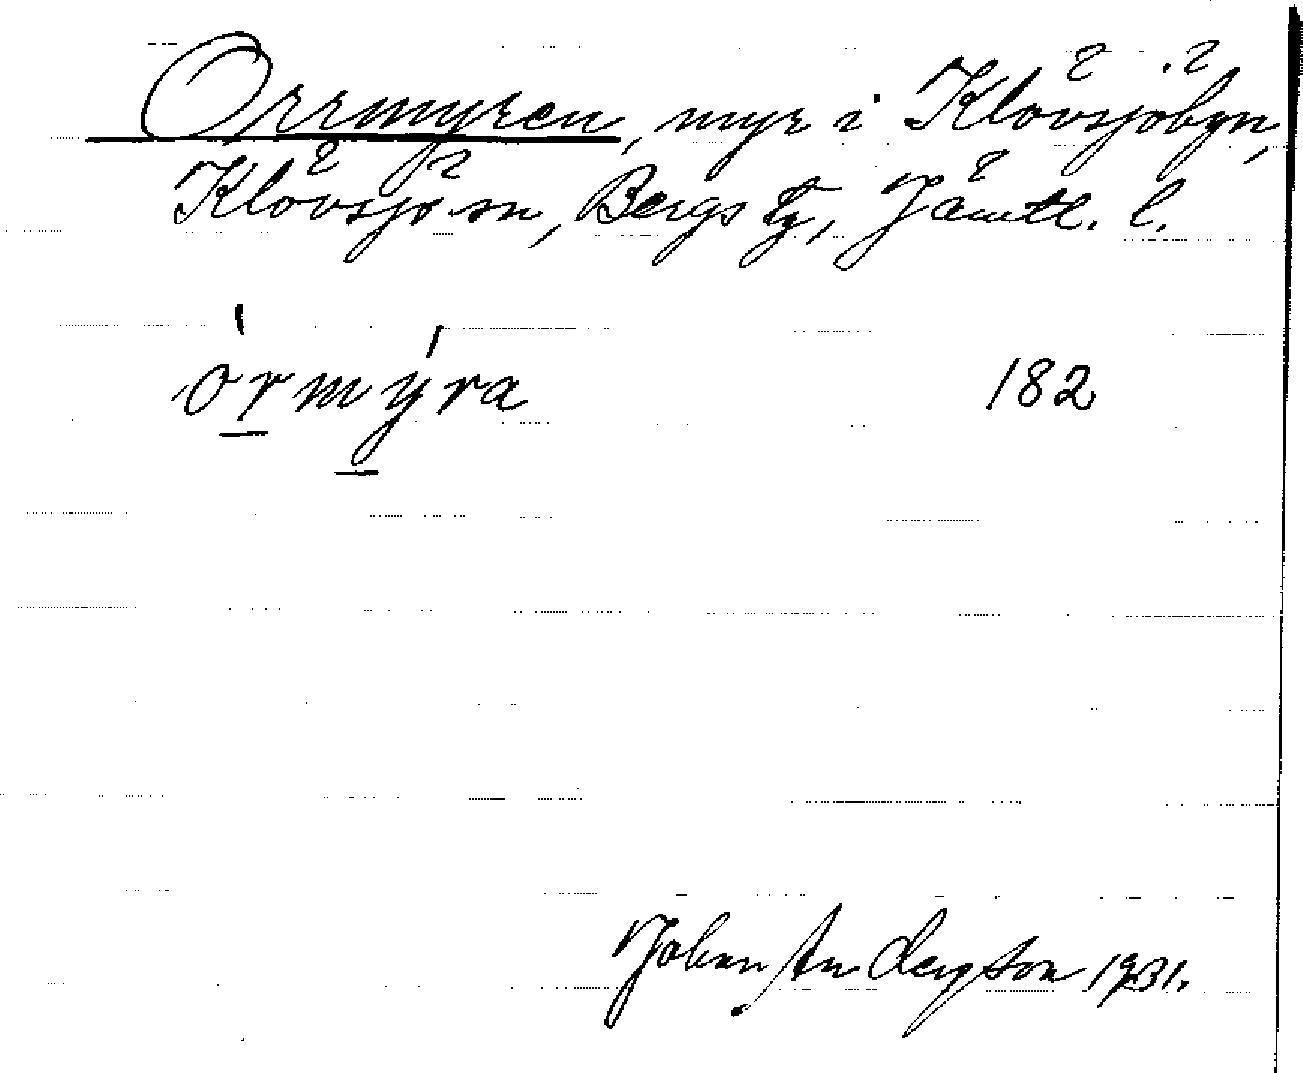 Orrmyren, myr i Klövsjöbyn,
Klövsjö sn, Bergs tg, Jämtl. l.
órmýra 182
Johan Anderson 1931.